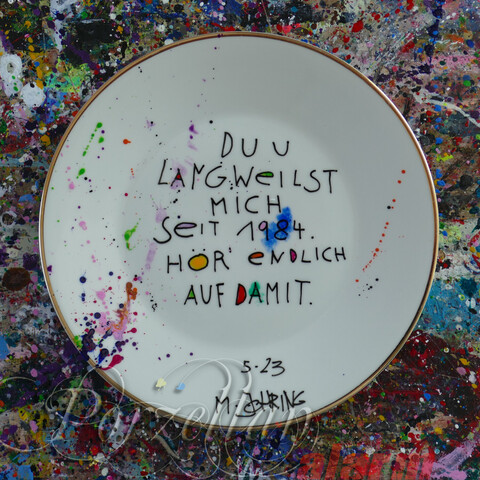 DU U
LANGWEILST
MICH
SEIT 1984.
HÖR ENDLICH
AUF DAMIT.
5·23
M. JOHRING
Porzellan
aladin